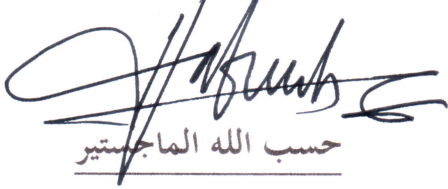 حسب الله الماجستير